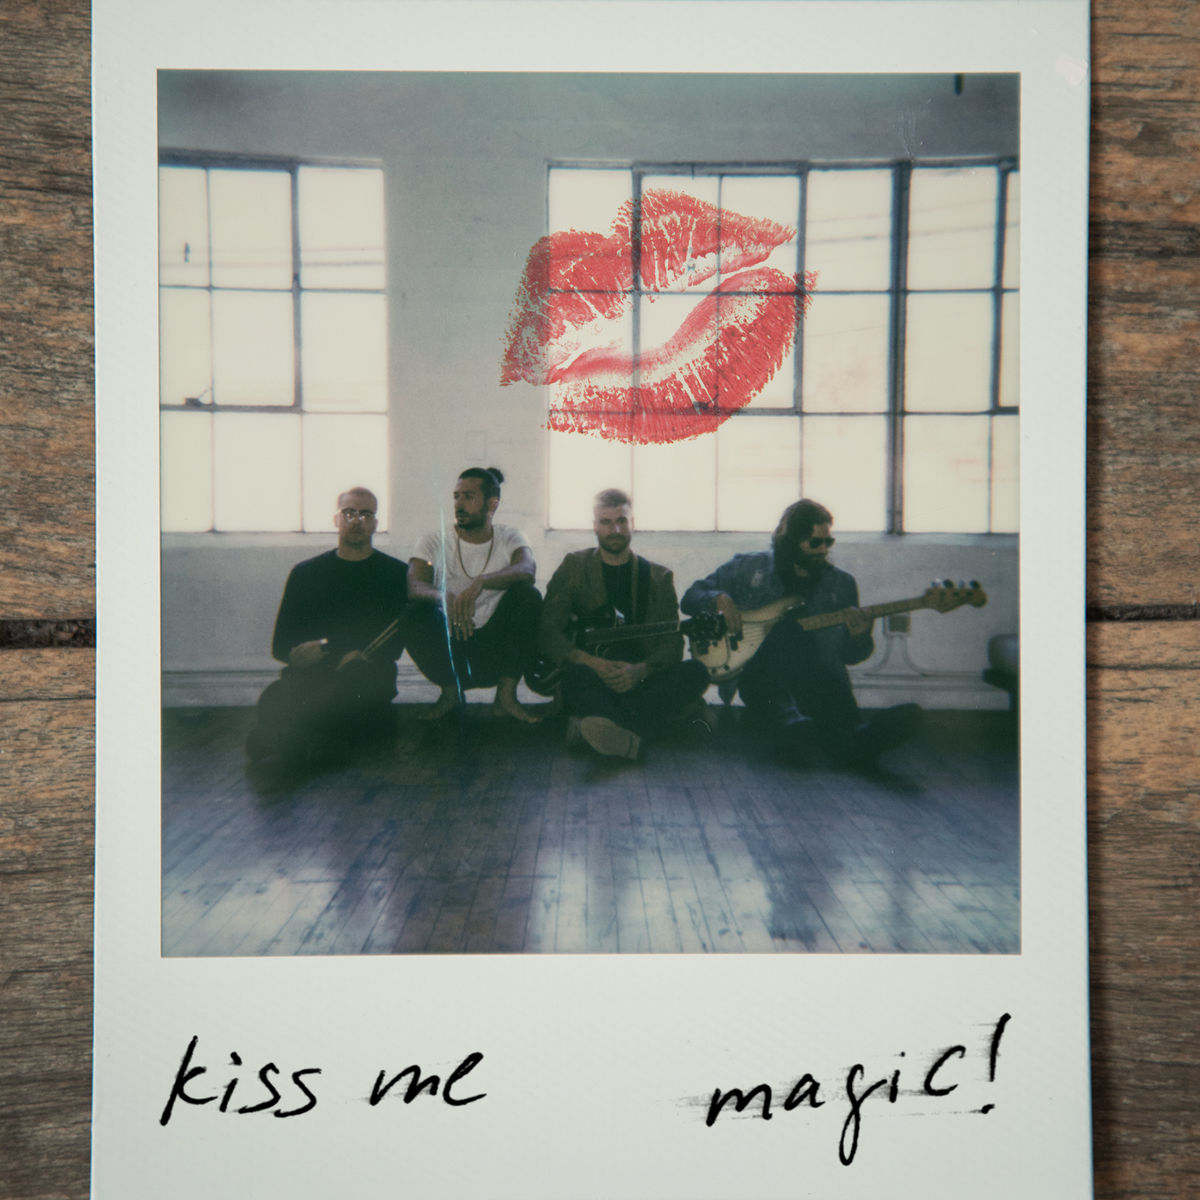 kiss me magic!